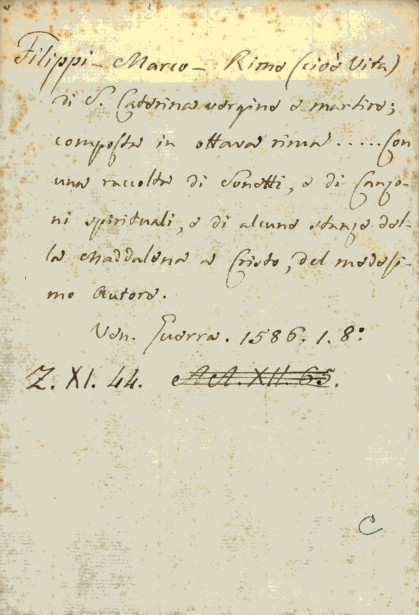 Filippi - Marco - Rime (cioè Vita)
di S. Caterina vergine e martire;
composta in ottava rima ..... Con
una raccolta di Sonetti, e di Canzo-
ni spirituali, e di alcune stanze del-
la Maddalena a Cristo, del medesi-
mo Autore.
Ven. Guerra. 1586. 1. 8:
Z. XI. 44. AA. XII. 65.
C